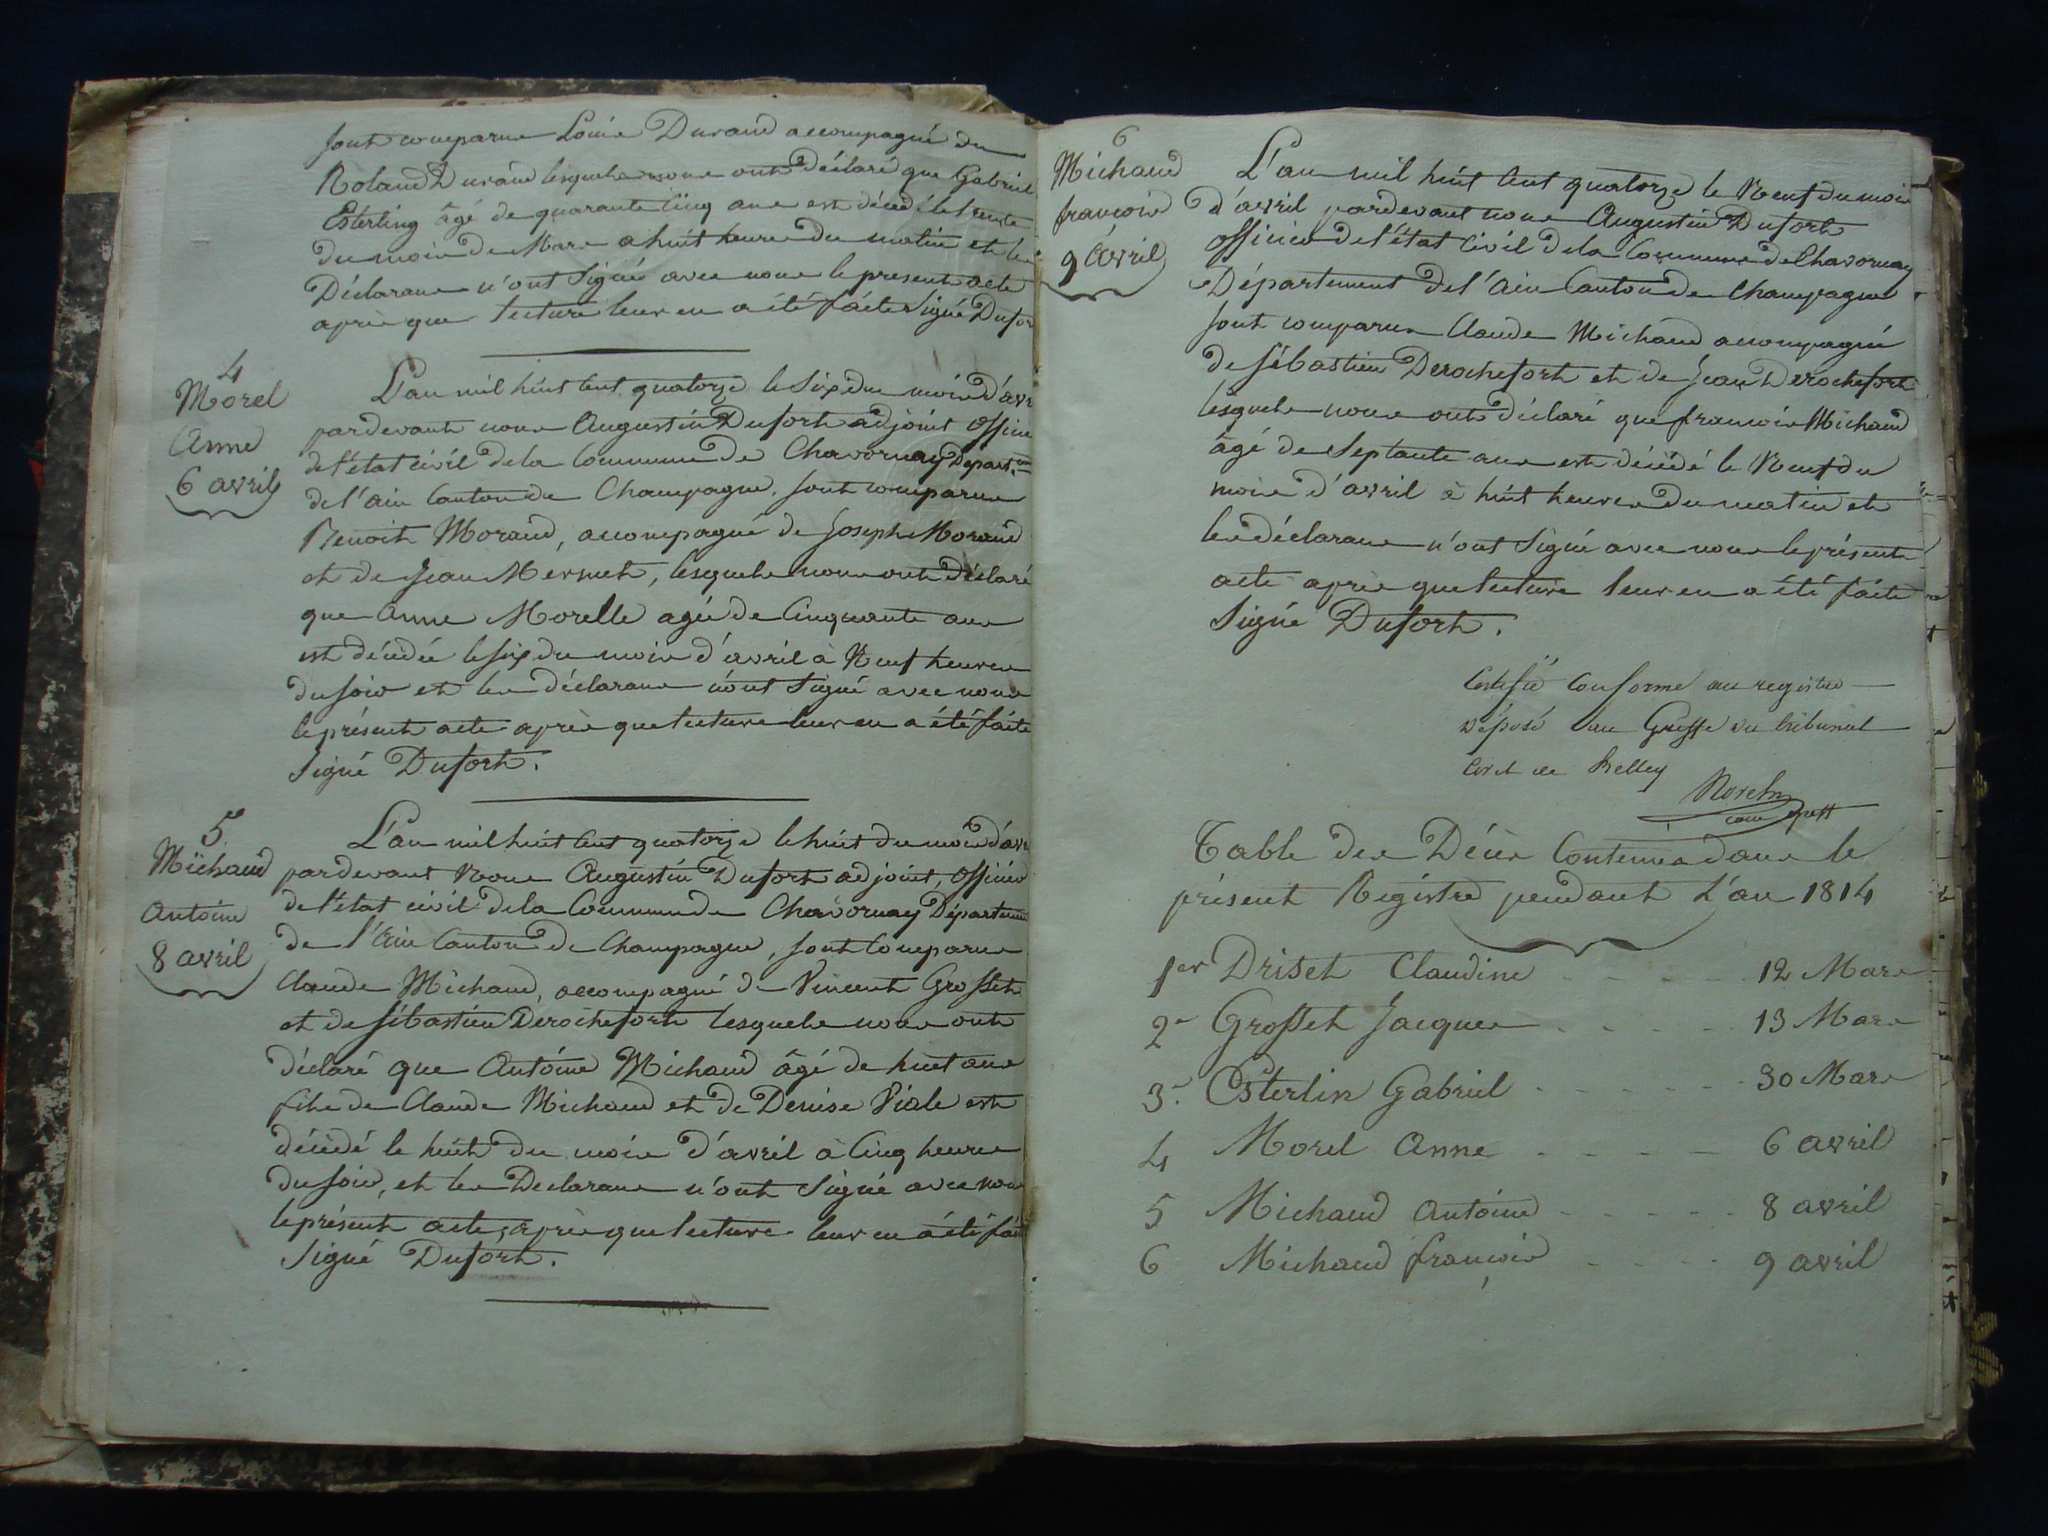 sont comparus Louis Durand accompagné de
Roland Durand lesquels nous ont déclaré que Gabriel
Esterling âgé de quarante cinq ans est décédé le trente
du mois de Mars a huit heure du matin et les
Déclarans n'ont signé avec nous le present acte
après que lecture leur en a été faite Signé Dufor
4
Morel
Anne
6 avril
L'an mil huit cent quatorze le six du mois d'avr
pardevant nous Augustin Dufort adjoint offici
de l'état civil de la Commune de Chavornay Depart.
de l'ain Canton de Champagne, sont comparus
Benoit Morand, accompagné de Joseph Morand
et de Jean Mermet, lesquels nous ont déclaré
que Anne Morelle agée de cinquante ans
est décédée le six du mois d'avril à Neuf heures
du soir et les déclarans n'ont signé avec nous
le présent acte après que lecture leur en a été faite
Signé Dufort.
5
Michaud
Antoine
8 avril
L'an mil huit cent quatorze le huit du mois d'avr
pardevant Nous Augustin Dufort adjoint, officier
de l'état civil de la Commune de Chavornay Départem
de l'Ain Canton de Champagne, sont Comparus
Claude Michaud, accompagné de Vincent Grosset
et de Sébastien Derochefort lesquels nous ont
déclaré que Antoine Michaud âgé de huit ans
fils de Claude Michaud et de Denise Viale est
décédé le huit du mois d'avril à Cinq heures
du soir, et les Declarans n'ont Signé avec nous
le présent acte, après que lecture leur en a été fai
Signé Dufort.
6
Michaud
francois
9 Avril
L'an mil huit Cent quatorze le Neuf du mois
d'avril pardevant nous Augustin Dufort
officier de l'état Civil de la Commune de Chavornay
Département de l'Ain Canton de Champagne
sont comparus Claude Michaud accompagné
de Sébastien Derochefort et de Jean Derochefort
lesquels nous ont déclaré que francois Michaud
âgé de Septante ans est décédé le Neuf du
mois d'avril à huit heures du matin et
les déclarans n'ont Signé avec nous le présent
acte après que lecture leur en a été faite
Signé Dufort.
Certifié conforme au registre
déposé au Greffe du tribunal
Civil de Belley
Table des Décès Contenus dans le
présent Régistre pendant L'an 1814
1er Driset Claudine 12 Mars
2e Grosset Jacques 13 Mars
3e Esterlin Gabriel 30 Mars
4 Morel Anne 6 avril
5 Michaud Antoine 8 avril
6 Michaud françois 9 avril